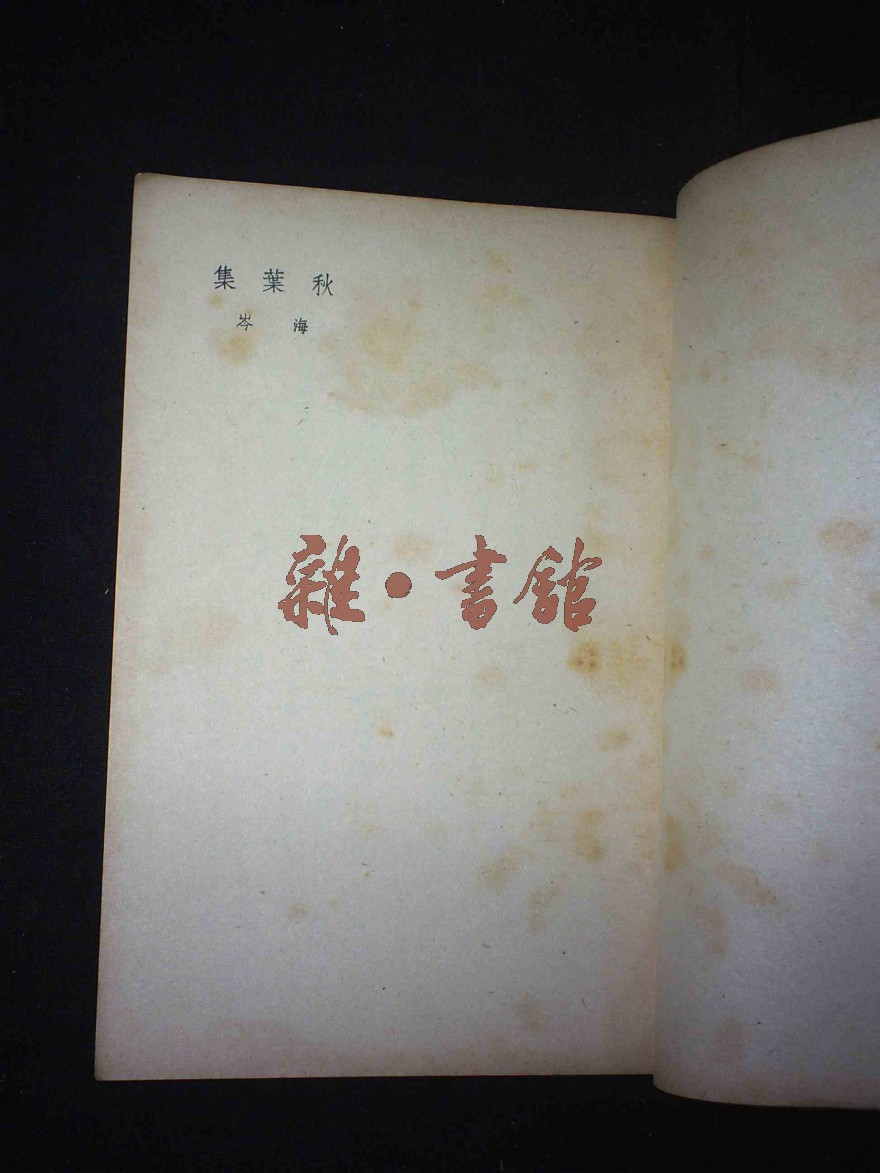 秋葉集
海岑
雜·書館